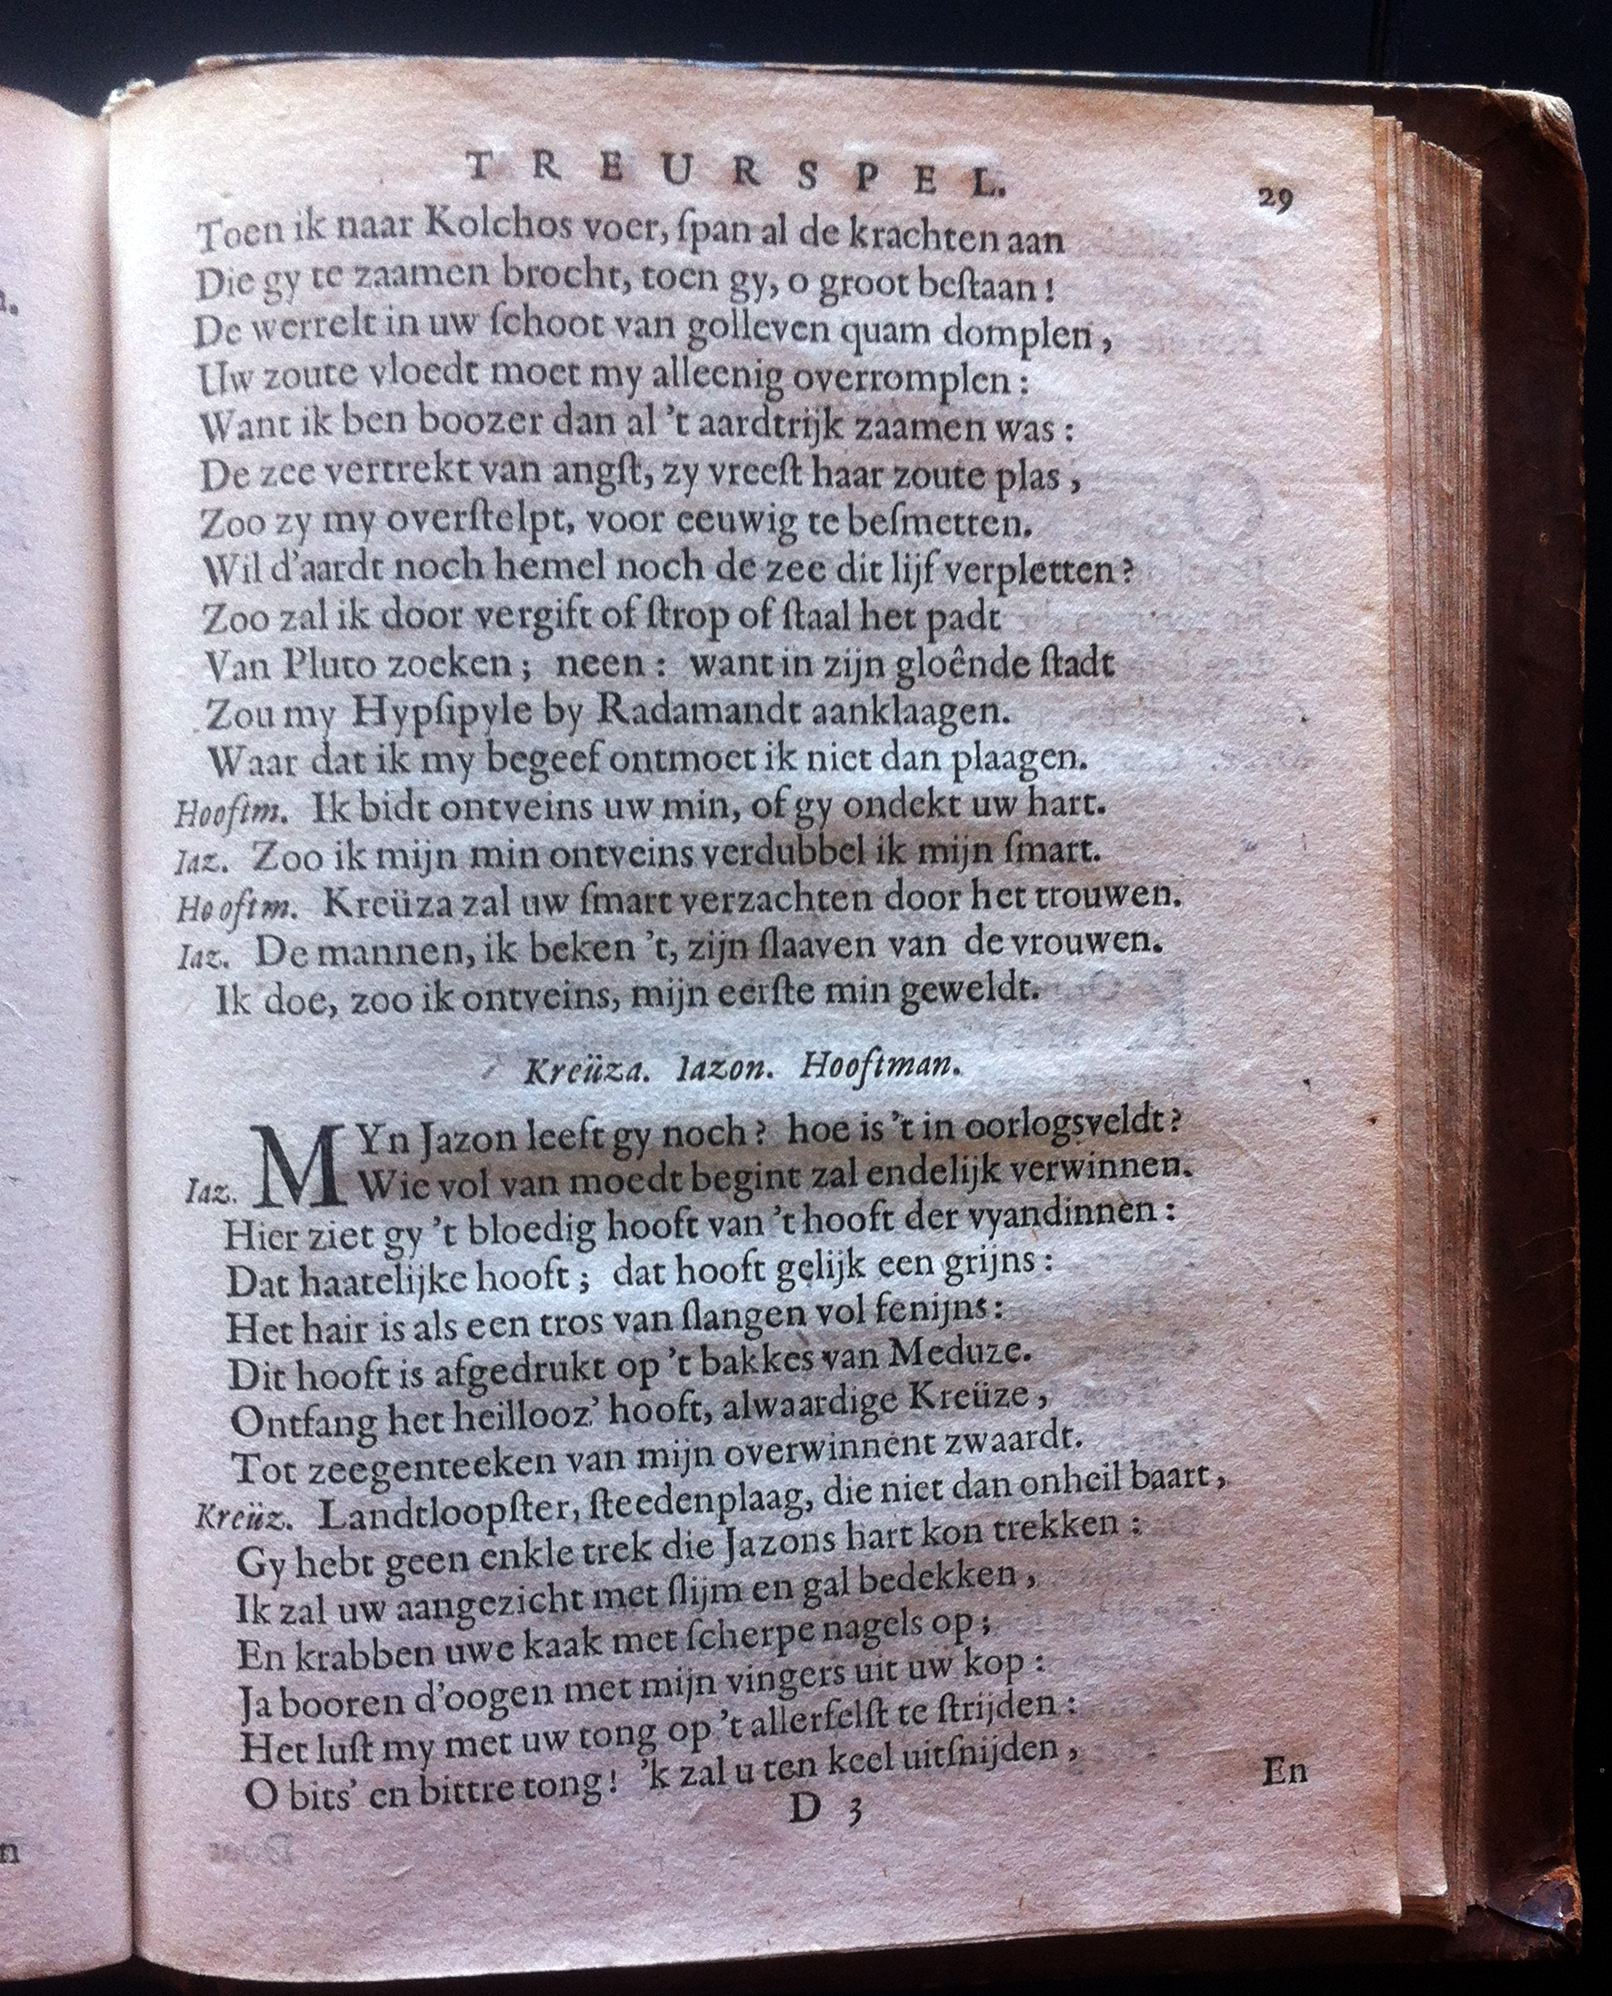 TREURSPEL.
29
Toen ik naar Kolchos voer, ſpan al de krachten aan
Die gy te zaamen brocht, toen gy, o groot beſtaan!
De werrelt in uw ſchoot van golleven quam domplen,
Uw zoute vloedt moet my alleenig overromplen:
Want ik ben boozer dan al 't aardtrijk zaamen was:
De zee vertrekt van angſt, zy vreeſt haar zoute plas,
Zoo zy my overſtelpt, voor eeuwig te beſmetten.
Wil d'aardt noch hemel noch de zee dit lijf verpletten?
Zoo zal ik door vergift of ſtrop of ſtaal het padt
Van Pluto zoeken; neen: want in zijn gloênde ſtadt
Zou my Hypſipyle by Radamandt aanklaagen.
Waar dat ik my begeef ontmoet ik niet dan plaagen.
Hooftm. Ik bidt ontveins uw min, of gy ondekt uw hart.
Iaz. Zoo ik mijn min ontveins verdubbel ik mijn ſmart.
Hooftm. Kreüza zal uw ſmart verzachten door het trouwen.
Iaz. De mannen, ik beken 't, zijn ſlaaven van de vrouwen.
Ik doe, zoo ik ontveins, mijn eerſte min geweldt.
Kreüza. Iazon. Hooftman.
MYn Jazon leeft gy noch? hoe is 't in oorlogsveldt?
Iaz. Wie vol van moedt begint zal endelijk verwinnen.
Hier ziet gy 't bloedig hooft van 't hooft der vyandinnen:
Dat haatelijke hooft; dat hooft gelijk een grijns:
Het hair is als een tros van ſlangen vol fenijns:
Dit hooft is afgedrukt op 't bakkes van Meduze.
Ontfang het heillooz' hooft, alwaardige Kreüze,
Tot zeegenteeken van mijn overwinnent zwaardt.
Kreüz. Landtloopſter, ſteedenplaag, die niet dan onheil baart,
Gy hebt geen enkle trek die Jazons hart kon trekken:
Ik zal uw aangezicht met ſlijm en gal bedekken,
En krabben uwe kaak met ſcherpe nagels op;
Ja booren d'oogen met mijn vingers uit uw kop:
Het luſt my met uw tong op 't allerfelſt te ſtrijden:
O bits' en bittre tong! 'k zal u ten keel uitſnijden,
D 3
En